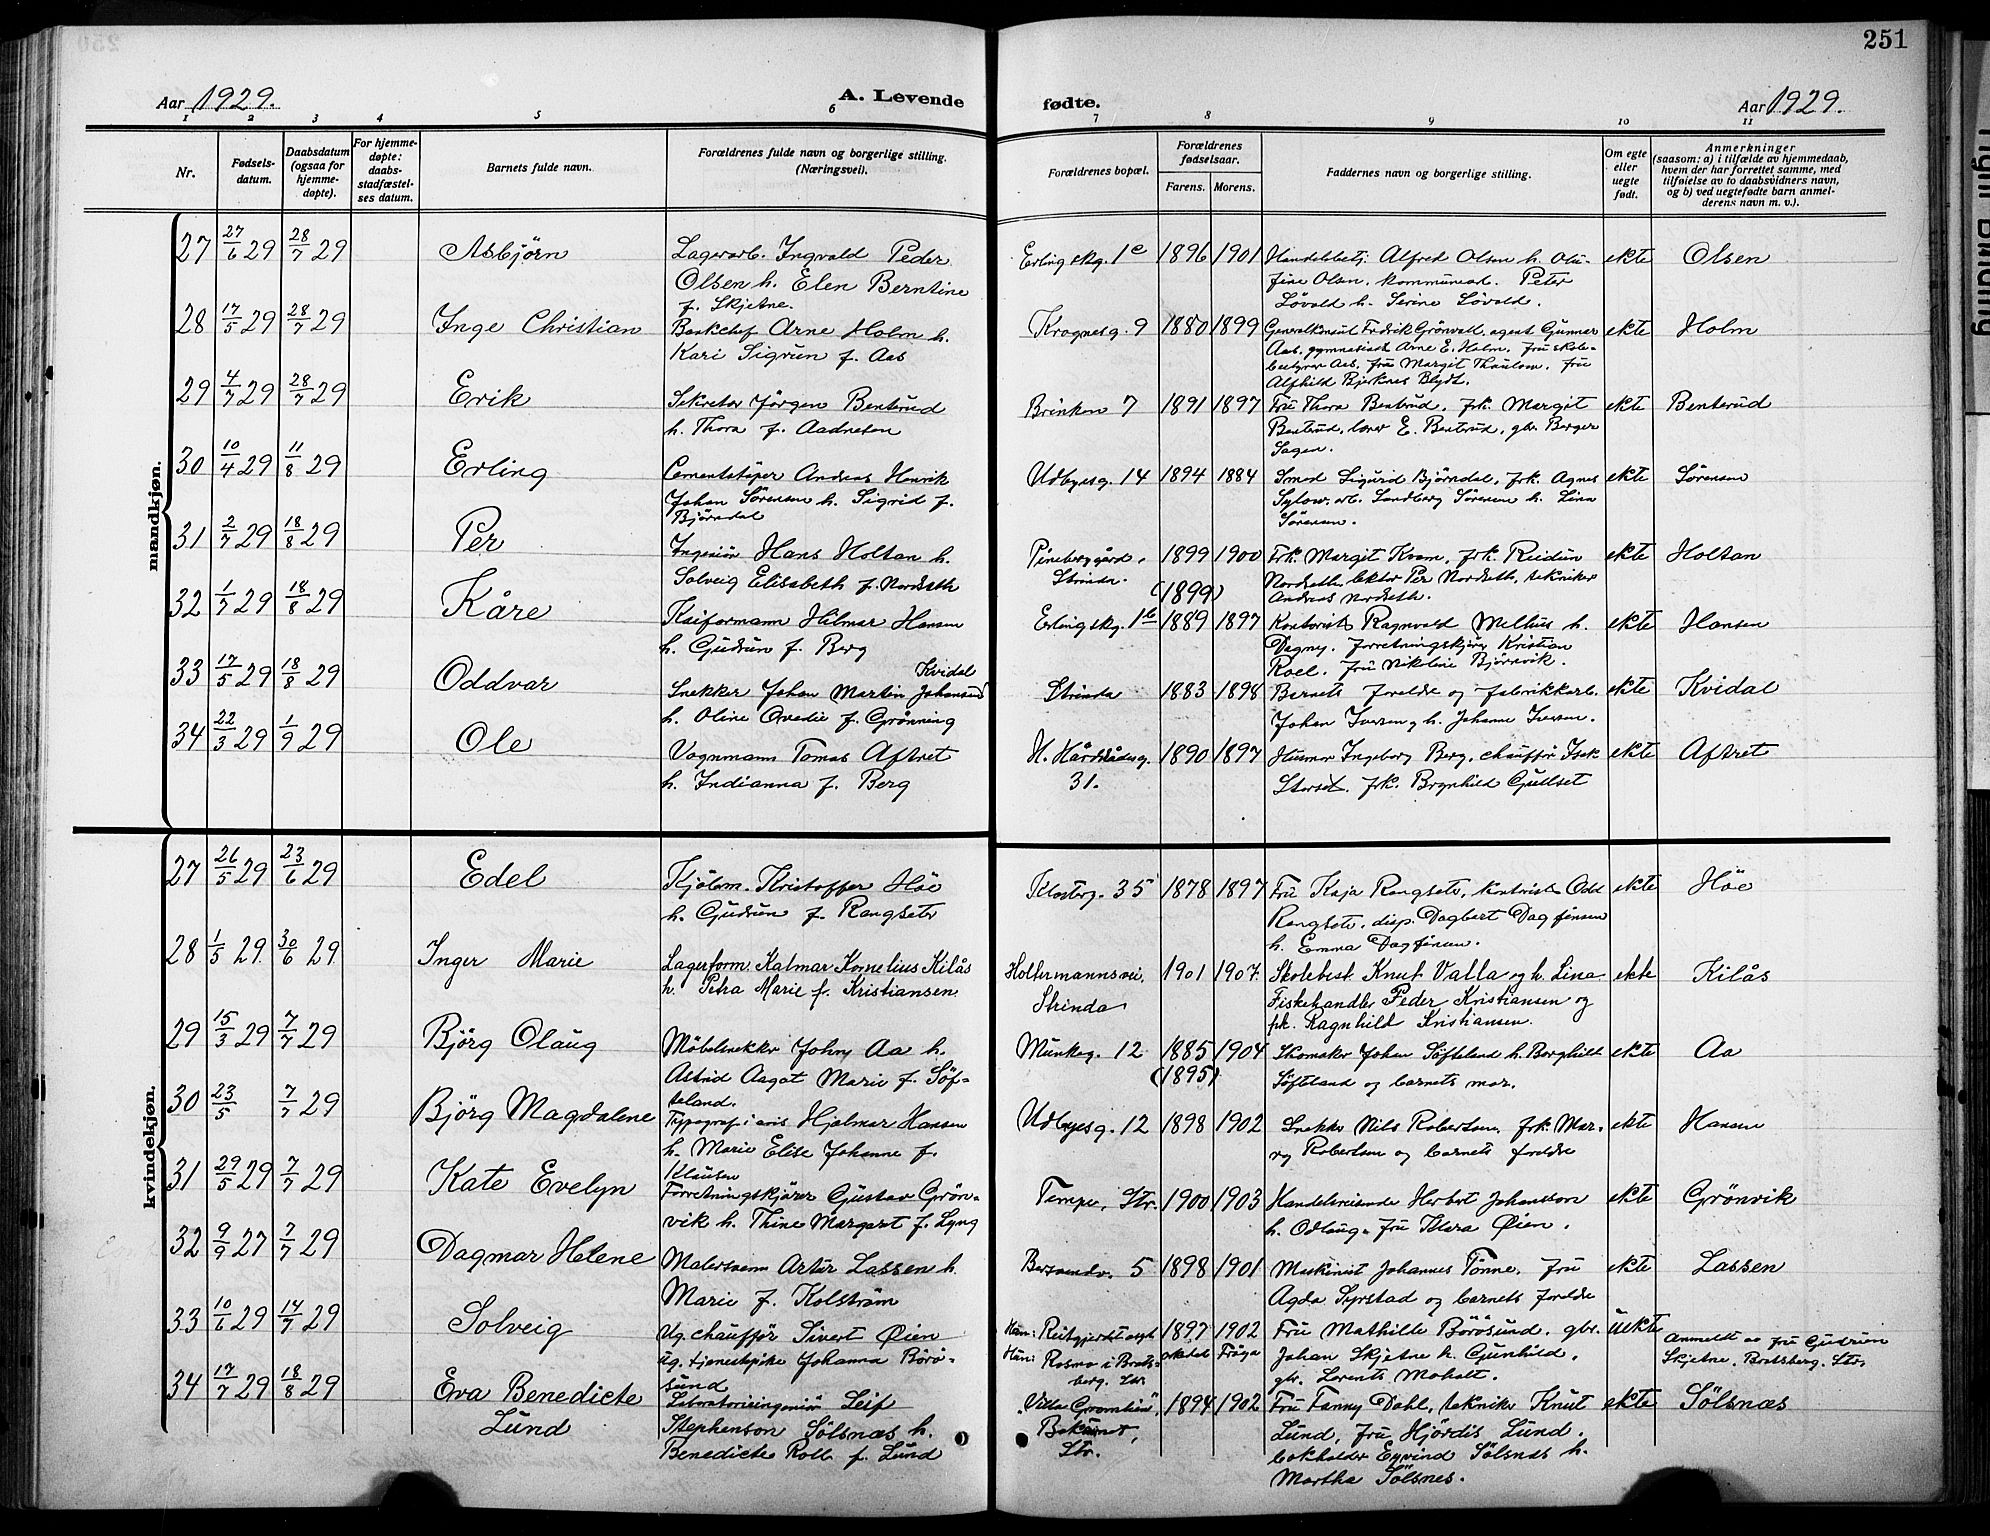 251
Aar 1929.
A. Levende
fødte.
Aar 1929.
1 2 3 4 5 6 7 8 9 10 11
Nr.
Fødsels-
datum.
Daabsdatum
(ogsaa for
hjemme-
døpte).
For hjemme-
døpte:
daabs-
stadfæstel-
ses datum.
Barnets fulde navn.
Forældrenes fulde navn og borgerlige stilling.
(Næringsvei).
Forældrenes bopæl.
Forældrenes
fødselsaar.
Farens. Morens.
Faddernes navn og borgerlige stilling.
Om egte
eller
uegte
født.
Anmerkninger
(saasom: a) i tilfælde av hjemmedaab,
hvem der har forrettet samme, med
tilføielse av to daabsvidners navn,
og b) ved uegtefødte barn anmel-
derens navn m. v.).
mandkjøn.
27 27/6 29 28/7 29 Asbjörn Lagerarb. Ingvald Peder Erling skg. 1c 1896 1901 Handelsbetj. Alfred Olsen h. Olu- ekte Olsen
Olsen h. Elen Berntine fine Olsen. Kommunearb. Peter
f. Skjetne. Lövold h. Serine Lövold.
28 17/5 29 28/7 29 Inge Christian Bankchef Arne Holm h. Krognesg. 9 1880 1899 Generalkonsul Fredrik Grönvall, agent Gunnar ekte Holm
Kari Sigrun f. Aas Aas, gymnasiast Arne E. Holm. Fru skole-
bestyrer Aas, Fru Margit Thaulow. Fru
Alfhild Bjerknes Blydt.
29 4/7 29 28/7 29 Erik Sekretær Jörgen Bentrud Brinken 7 1891 1897 Fru Thora Bentrud, frk. Margit ekte Bentrud
h. Thora f. Aadnesen Bentrud, lærer E. Bentrud, gbr. Berger
Sagen.
30 10/4 29 11/8 29 Erling Cementstöper Andreas Henrik Udbyesg. 14 1894 1884 Smed Sigurd Björndal, frk. Agnes ekte Sörensen
Johan Sörensen h. Sigrid f. Sylow, arb. Sandberg Sörensen h. Lina
Björndal Sörensen.
31 2/7 29 18/8 29 Per Ingeniör Hans Holtan h. Pineberggård, 1899 1900 Frk. Margit Kvam, frk. Reidun ekte Holtan
Solveig Elisabeth f. Nordseth Strinda. (1899) Nordseth, lektor Per Nordseth, tekniker
Andreas Nordseth.
32 1/7 29 18/8 29 Kåre Kaiformann Hilmar Hansen Erling skg. 1b 1889 1897 Kontorist Ragnvald Melhus h. ekte Hansen
h. Gudrun f. Berg Dagny. Forretningskjörer Kristian
Roel. Fru Nikoline Björnvik.
33 17/5 29 18/8 29 Oddvar Kvidal
Snekker Johan Martin Johansen Strinda 1883 1898 Barnets foreldre og fabrikkarb. ekte Kvidal
h. Oline Ovedie f. Grönning Johan Iversen og h. Johanne Iversen.
34 22/3 29 1/9 29 Ole Vognmann Tomas Aftret H. Hårdrådesg. 1890 1897 Husmor Ingeborg Berg, chaufför Isak ekte Aftret
h. Indianna f. Berg 31. Storset. Frk. Brynhild Gullset
kvindekjøn.
27 26/5 29 23/6 29 Edel Kjölem. Kristoffer Höe Klosterg. 35 1878 1897 Fru Kaja Rangseter, kontorist Odd ekte Höe
h. Gudrun f. Rangseter Rangseter, disp. Dagbert Dagfinsen
h. Emma Dagfinsen.
28 1/5 29 30/6 29 Inger Marie Lagerform. Kalmar Kornelius Kilås Holtermannsvei, 1901 1907 Skolebest. Knut Valla og h. Lina ekte Kilås
h. Petra Marie f. Kristiansen Strinda Fiskehandler Peder Kristiansen og
frk. Ragnhild Kristiansen.
29 15/3 29 7/7 29 Björg Olaug Möbelsnekker Johny Aa h. Munkeg. 12 1885 1904 Skomaker Johan Söfteland h. Borghild ekte Aa
Astrid Aagot Marie f. Söf- (1895) Söfteland og barnets mor.
teland.
30 23/5 7/7 29 Björg Magdalene Typograf i avis Hjalmar Hansen Udbyesg. 12 1898 1902 Snekker Nils Robertsen, frk. Mar- ekte Hansen
h. Marie Elise Johanne f. ry Robertsen og barnets foreldre
Klausen
31 29/5 29 7/7 29 Kate Evelyn Forretningskjörer Gustav Grön- Tempe, Str. 1900 1903 Handelsreisende Herbert Johansson ekte Grönvik
vik h. Thine Margaret f. Lyng h. Odlaug. Fru Klara Øien.
32 9/9 27 7/7 29 Dagmar Helene Malersvenn Artur Lassen h. Bersvendv. 5 1898 1901 Maskinist Johannes Tönne. Fru ekte Lassen
Marie f. Kolström Agda Syrstad og barnets foreldre
33 10/6 29 14/7 29 Solveig Ug. chaufför Sivert Øien Han: Reitgjerdet asyl 1897 1902 Fru Mathille Börösund. gbr. Uekte Anmeldt av Fru Gudrun
ug. tjenestepike Johanna Börö- Hun: Rosmo i Brats- Fröya Johan Skjetne h. Gunhild, Skjetne, Bratsberg. Str.
sund berg. Str. gbr. Lorents Moholt.
34 17/7 29 18/8 29 Eva Benedicte Laboratorieingeniör Leif 1894 1902 Fru Fanny Dahl, tekniker Knut ekte Sölsnæs
Lund Stephenson Sölsnæs h. Lund, Fru Hjördis Lund.
Benedicte Roll f. Lund Str. bokholder Eyvind Sölsnæs h.
Martha Sölsnes.